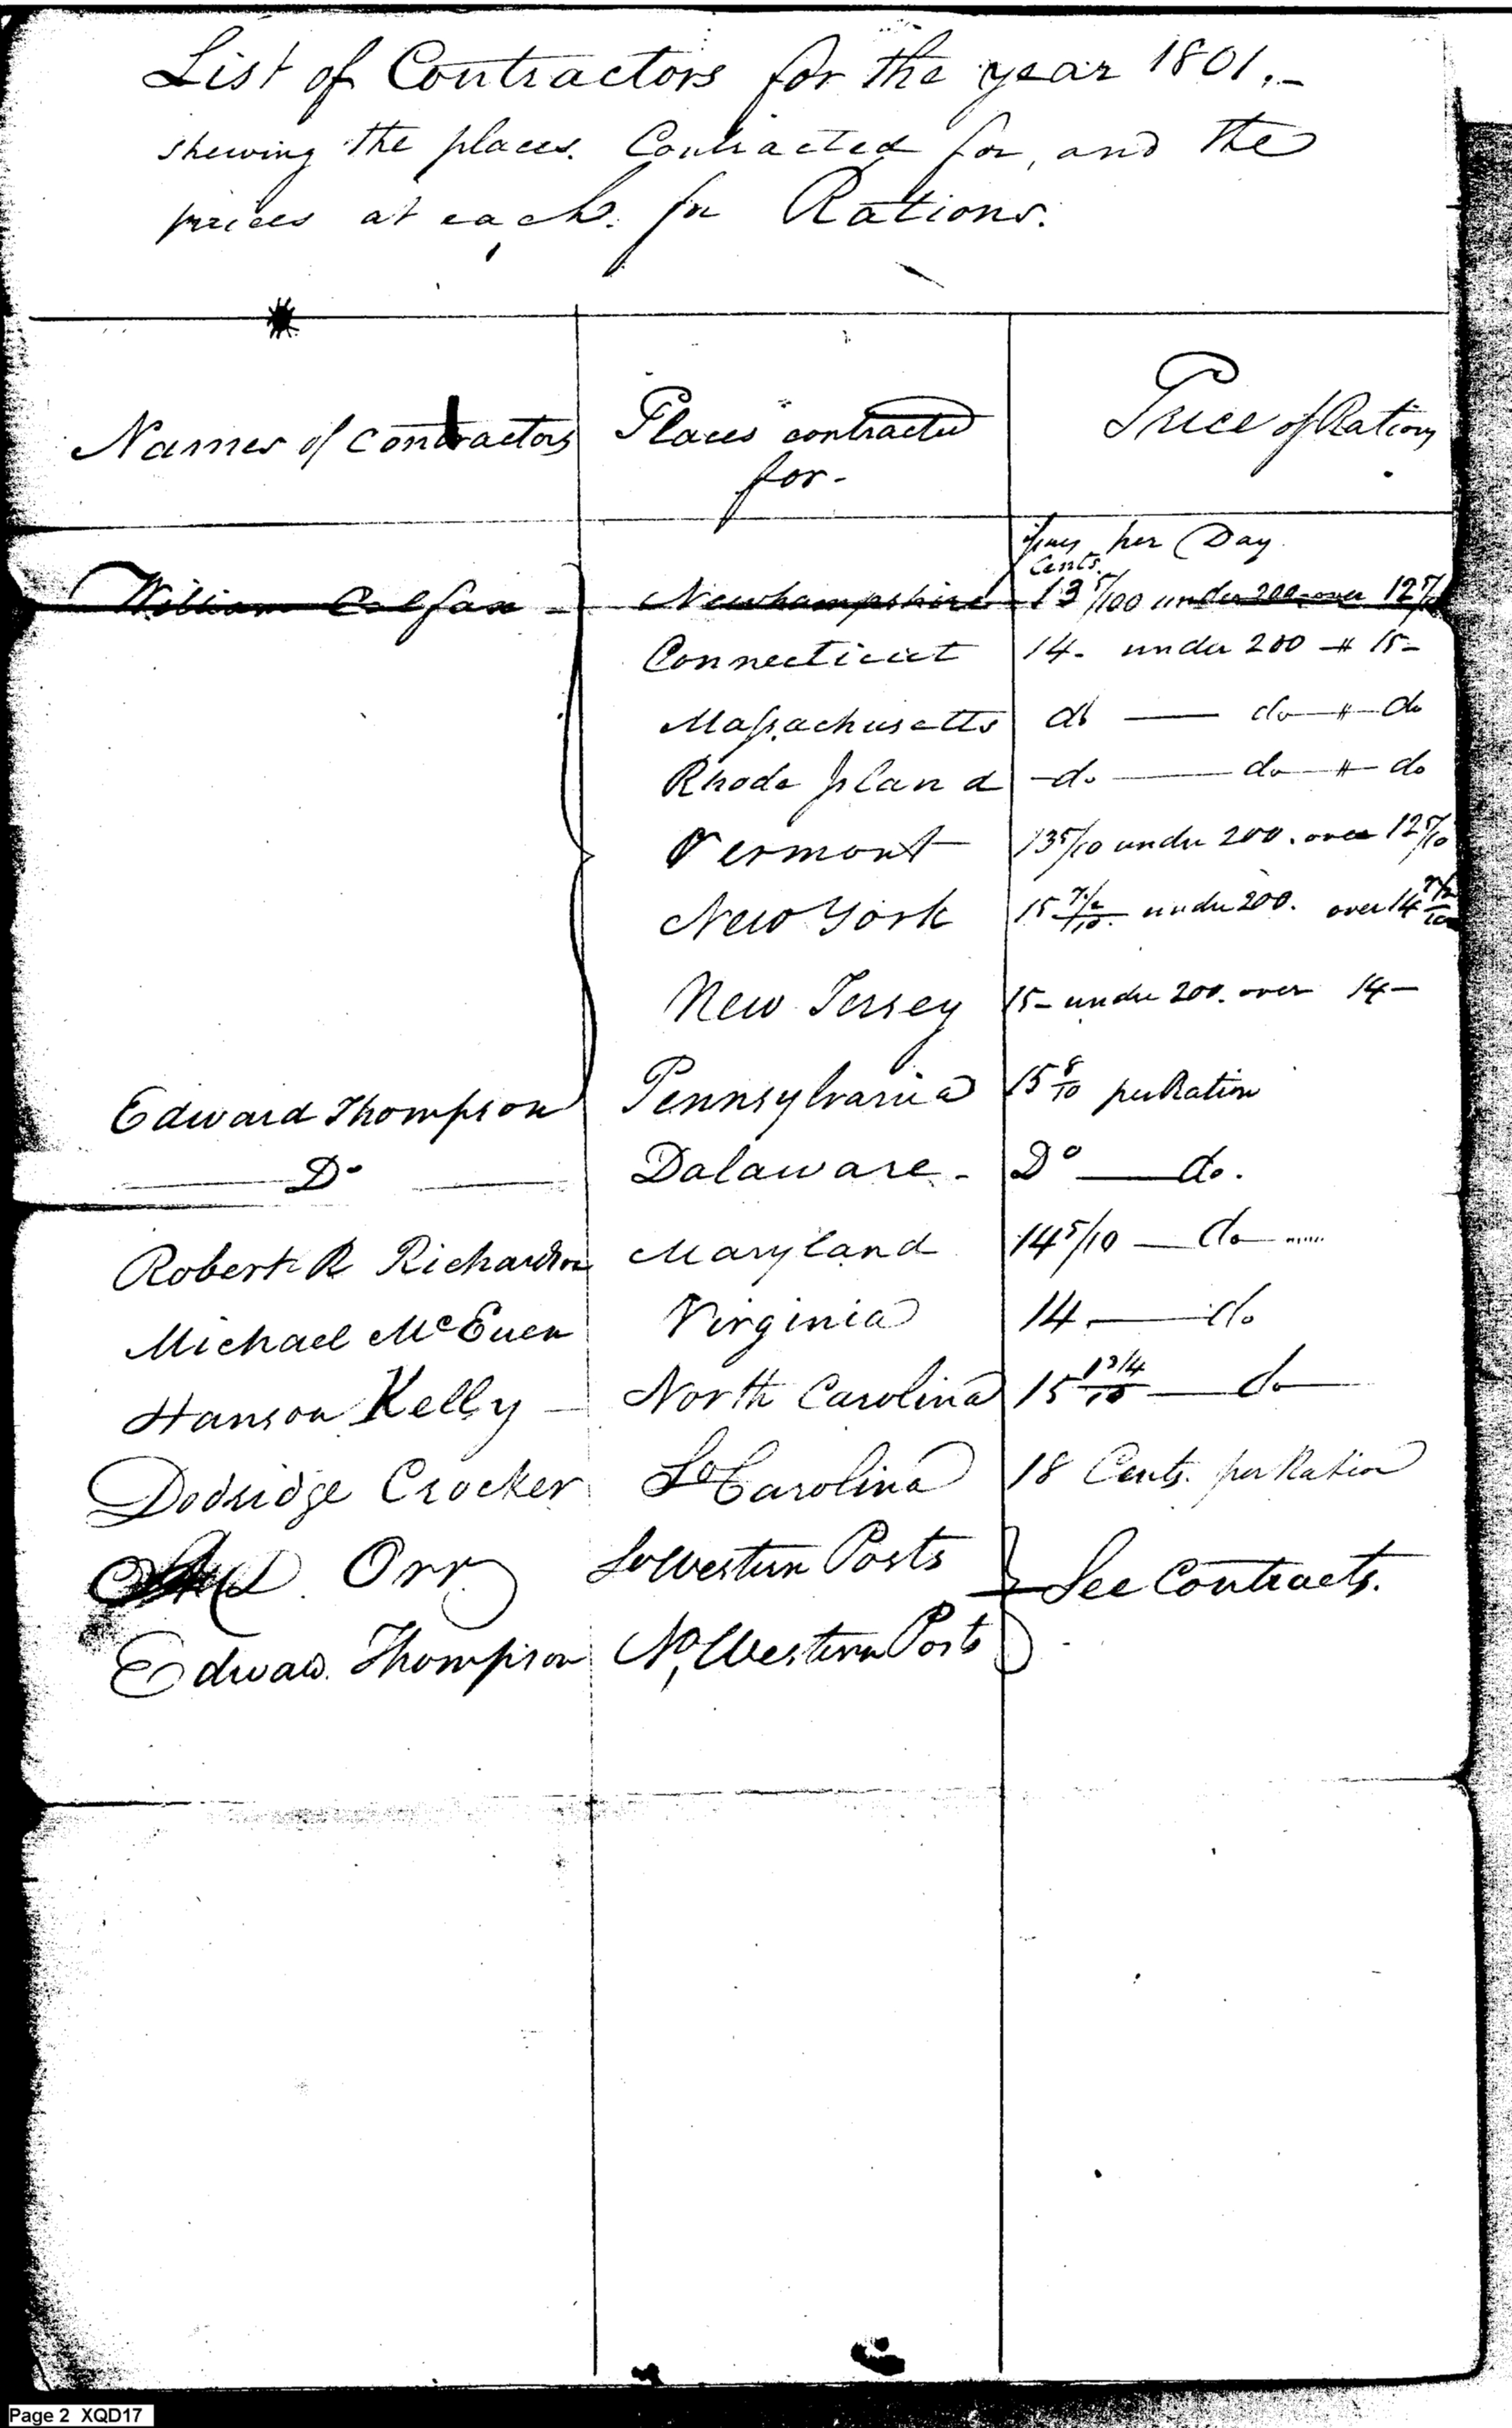 List of Contractors for the year 1801.-
shewing the places. Contracted for, and the
prices at each. for Rations.
Names of contractors Places contracted for- Price of Rations
per Day
Cents.
William Colfax - Newhampshire 13 5/100 under 200 over 12 5/10
Connecticut 14- under 200 -〃 15-
Massachusetts do — do -〃- do
Rhode Island -do — do -〃- do
Vermont 13 5/10 under 200. over 12 5/10
New York 15 7½/10 under 200. over 14 7½/10
New Jersey 15- under 200. over 14-
Edward Thompson Pennsylvania 15 8/10 per Ration
Do Dalaware - Do — do.
Robert R Richardson Maryland 14 5/10 — do
Michael McEuen Virginia 14 — do
Hanson Kelly - North Carolina 15 1 3/4/10 — do
Dodridge Crocker So Carolina 18 Cents. per Ration
Orr So Western Posts See Contracts.
Edward Thompson No, Western Posts
Page 2 XQD17